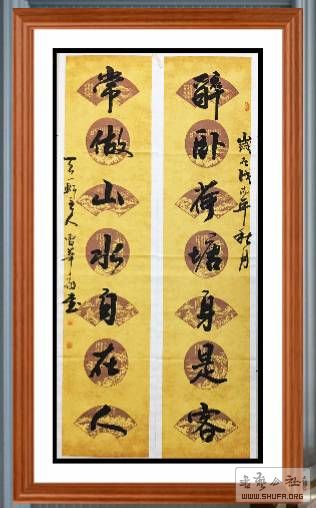 醉卧荷塘身是客
岁在戊戌年秋月
常做山水自在人
书艺公社
WWW.SHUFA.ORG